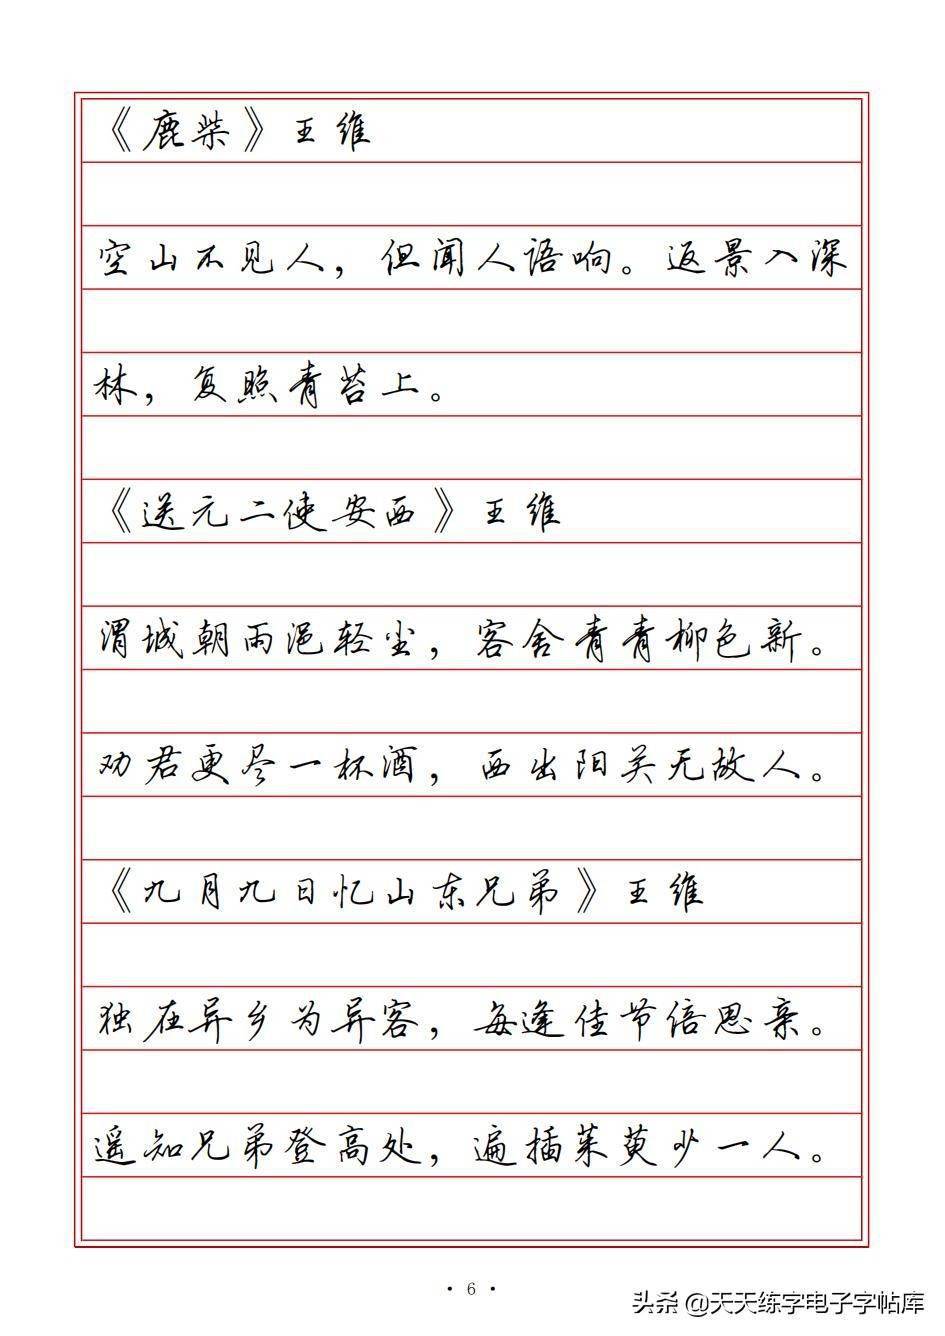 《鹿柴》王维
空山不见人，但闻人语响。返景入深
林，复照青苔上。
《送元二使安西》王维
渭城朝雨浥轻尘，客舍青青柳色新。
劝君更尽一杯酒，西出阳关无故人。
《九月九日忆山东兄弟》王维
独在异乡为异客，每逢佳节倍思亲。
遥知兄弟登高处，遍插茱萸少一人。
· 6 ·
头条 @天天练字电子字帖库